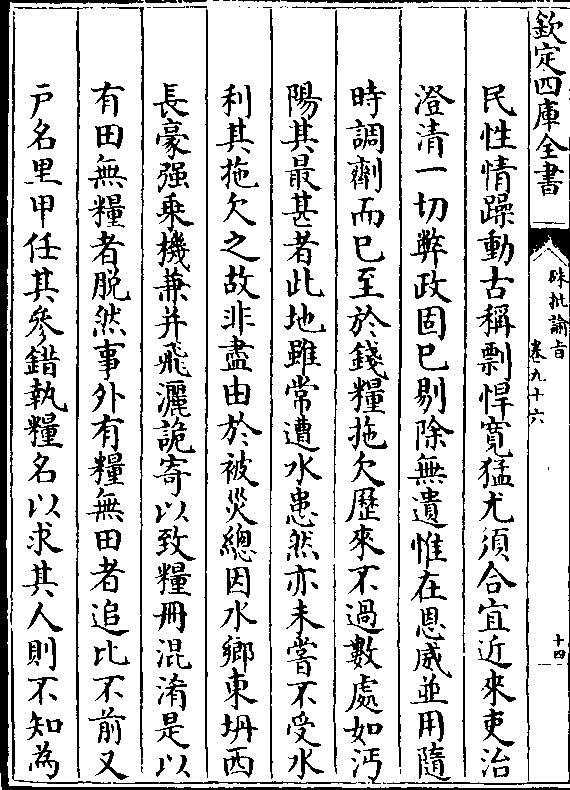 欽定四庫全書
硃批諭旨
卷九十六
十四
民性情躁動古稱剽悍寛猛尤須合宜近來吏治
澄清一切弊政固已剔除無遺惟在恩威並用隨
時調劑而已至於錢糧拖欠歴來不過數處如沔
陽其最甚者此地雖常遭水患然亦未嘗不受水
利其拖欠之故非盡由於被災總因水鄉東坍西
長豪强乗機兼并飛灑詭寄以致糧冊混淆是以
有田無糧者脱然事外有糧無田者追比不前又
戸名里甲任其參錯執糧名以求其人則不知為